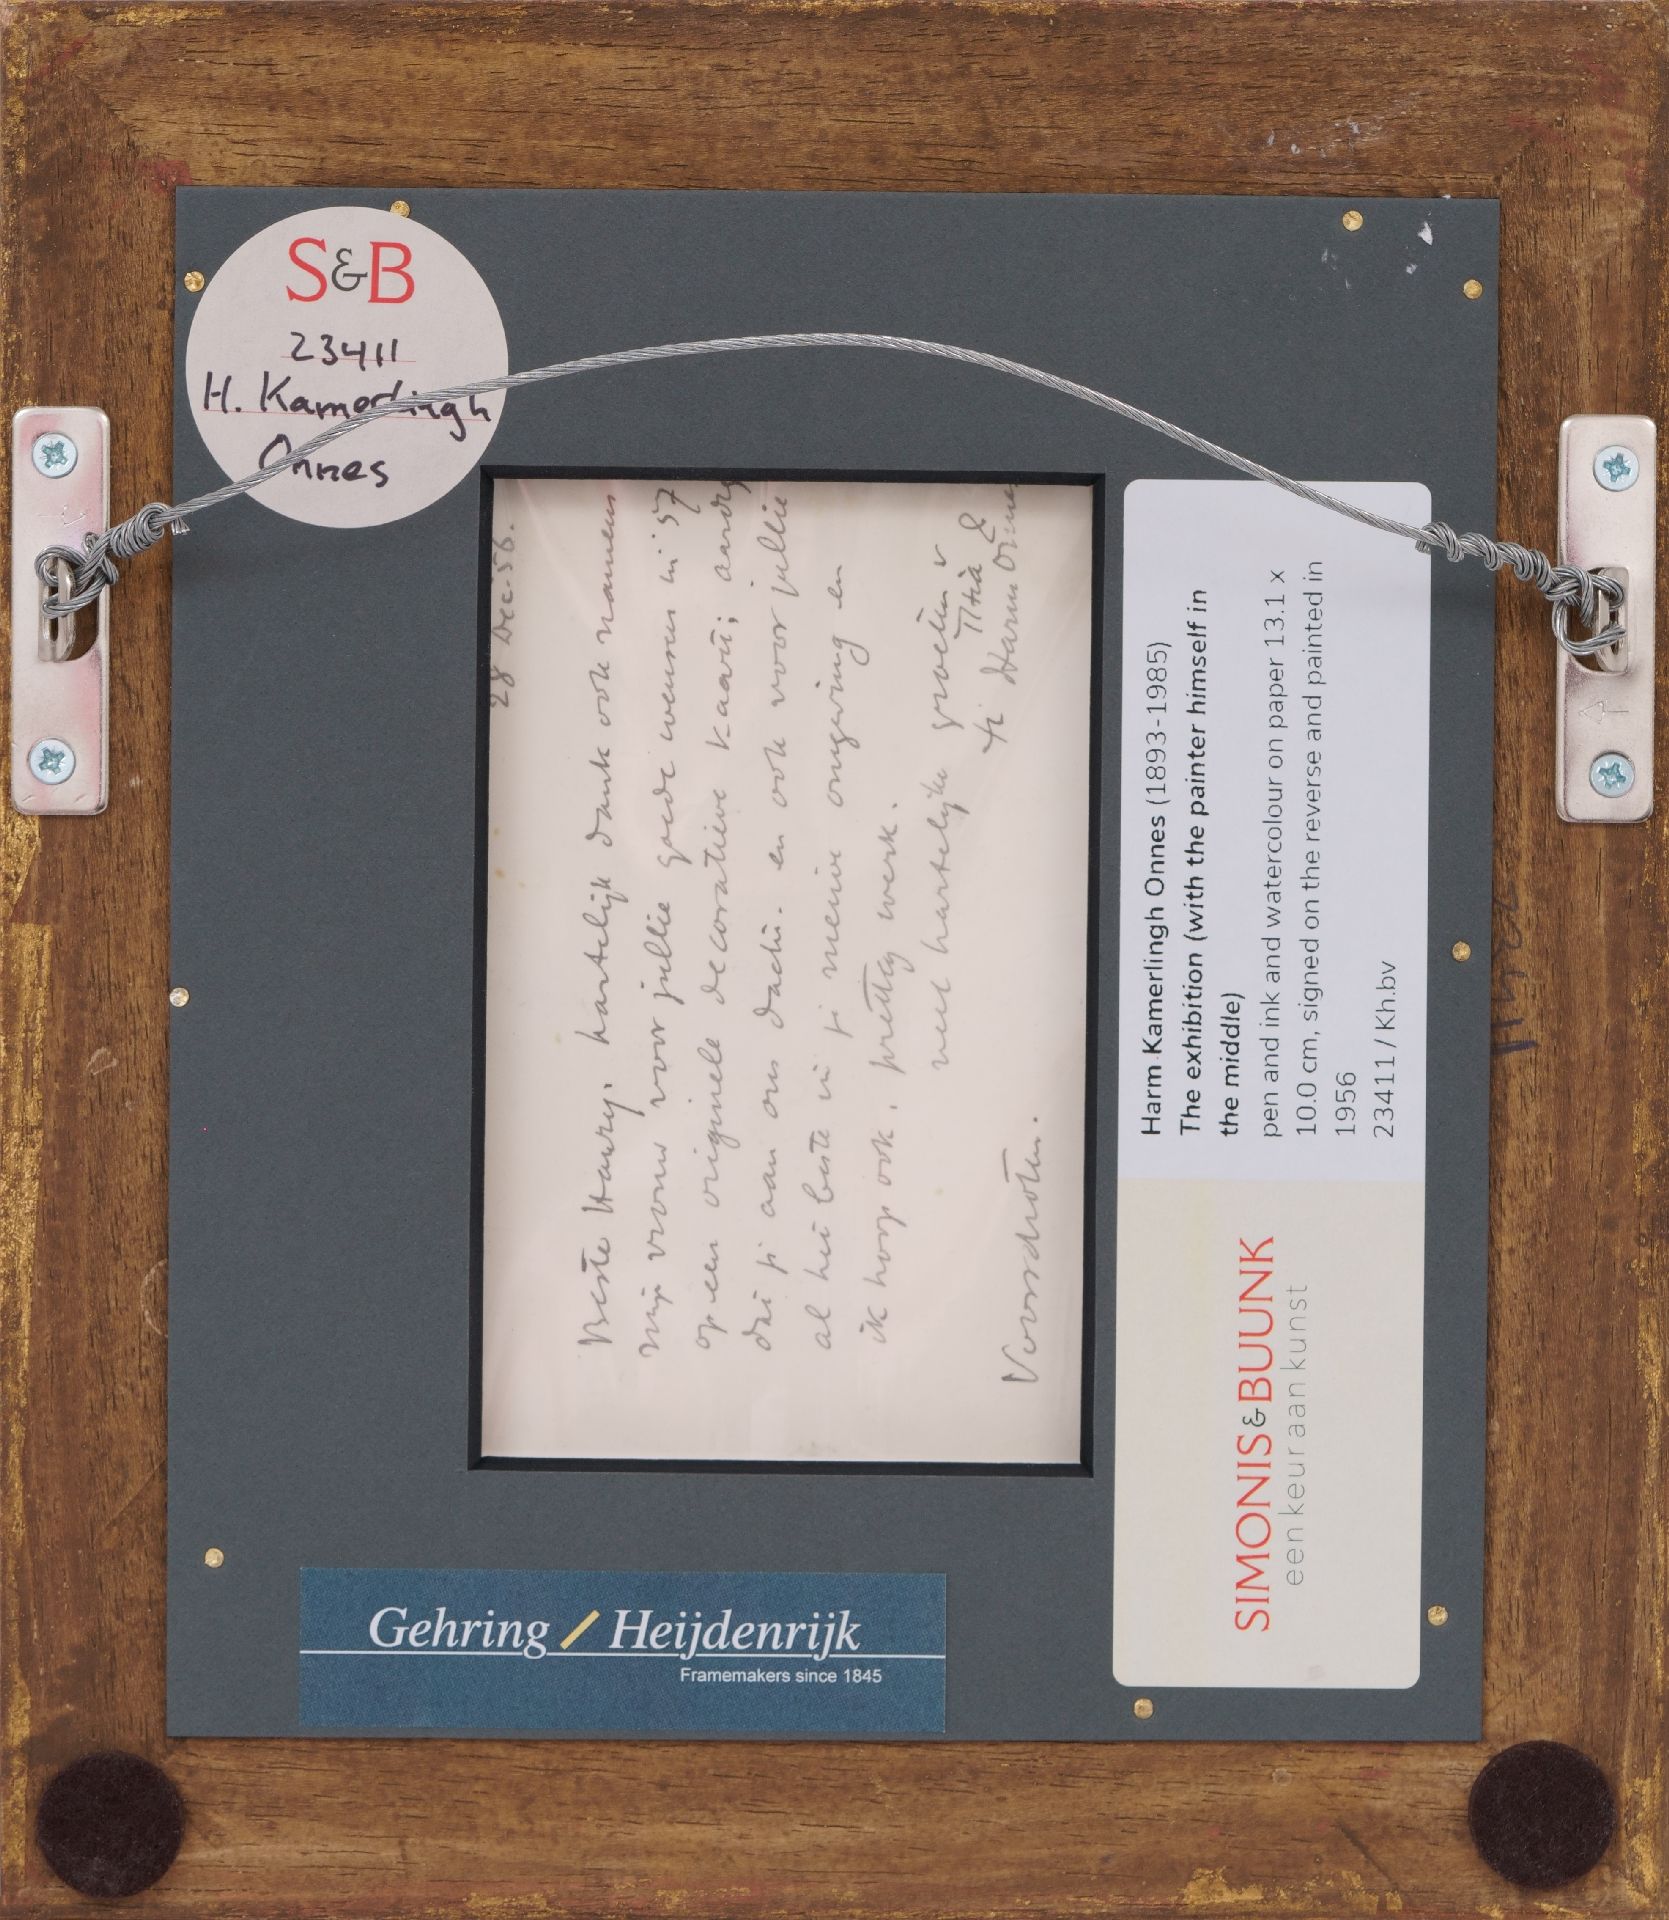 S&B
23411
H. Kamerlingh
Onnes
28 Dec. 56.
Beste Harry. hartelijk dank ook namens
mijn vrouw voor jullie goede wensen in '57
op een originele decoratieve kaart; aardig
dat je aan ons dacht. en ook voor jullie
al het beste in je nieuwe omgeving en
ik hoop ook. prettig werk.
met hartelijke groeten v
Titia &
je Harm Onnes
Voorschoten.
Harm Kamerlingh Onnes (1893-1985)
The exhibition (with the painter himself in
the middle)
pen and ink and watercolour on paper 13.1 x
10.0 cm, signed on the reverse and painted in
1956
23411/ Kh.bv
SIMONIS&BUUNK
een keur aan kunst
Gehring / Heijdenrijk
Framemakers since 1845